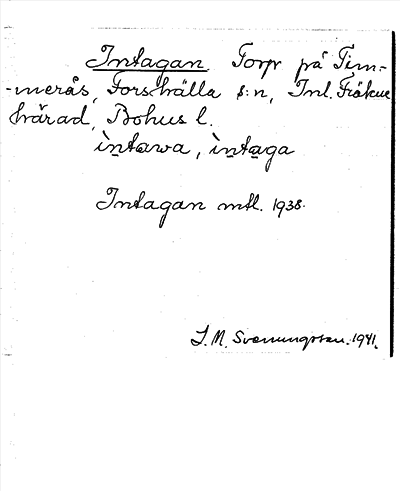 Intagan. Torp på Tim-
-merås, Forshälla s:n, Inl. Fräkne
härad, Bohus l.
ìntawa, ìntaga
Intagan mtl. 1938.
J. M. Svenungsson. 1941.